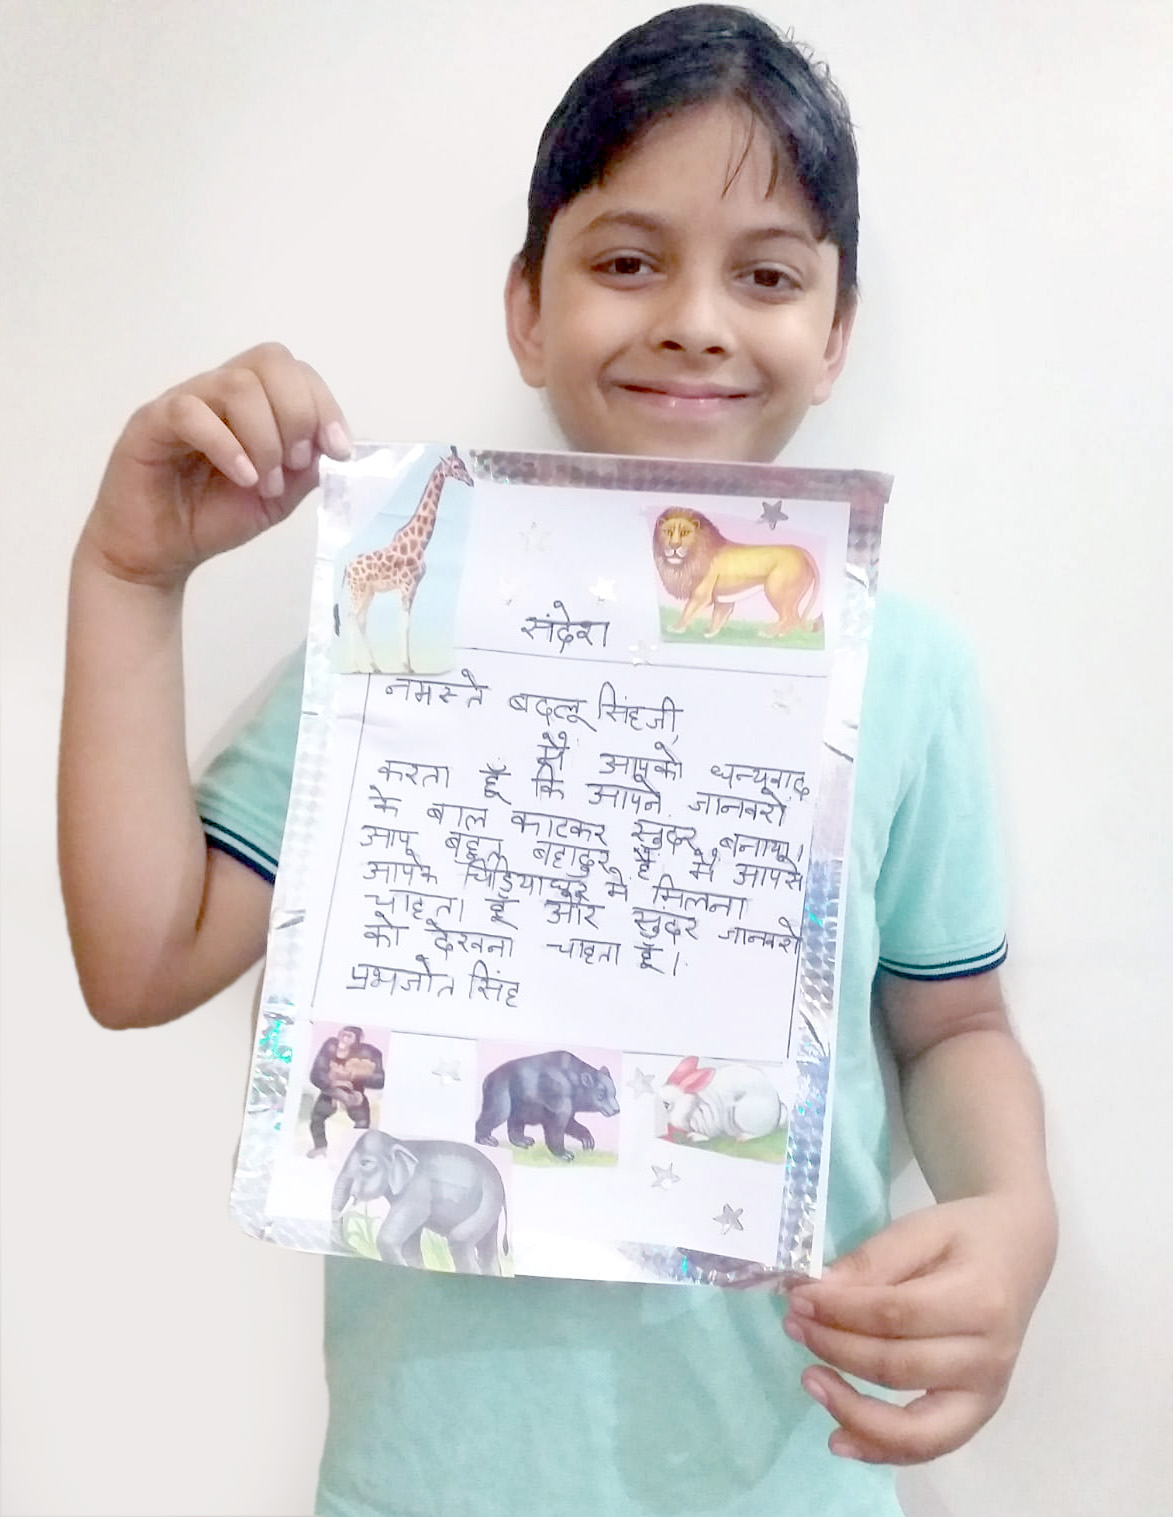 संदेश
नमस्ते बदलू सिंहजी,
मैं आपको धन्यवाद
करता हूँ कि आपने जानवरों
के बाल काटकर सुंदर बनाया।
आप बहुत बहादुर हैं मैं आपसे
आपके चिड़ियाघर में मिलना
चाहता हूँ और सुंदर जानवरों
को देखना चाहता हूँ।
प्रभजोत सिंह